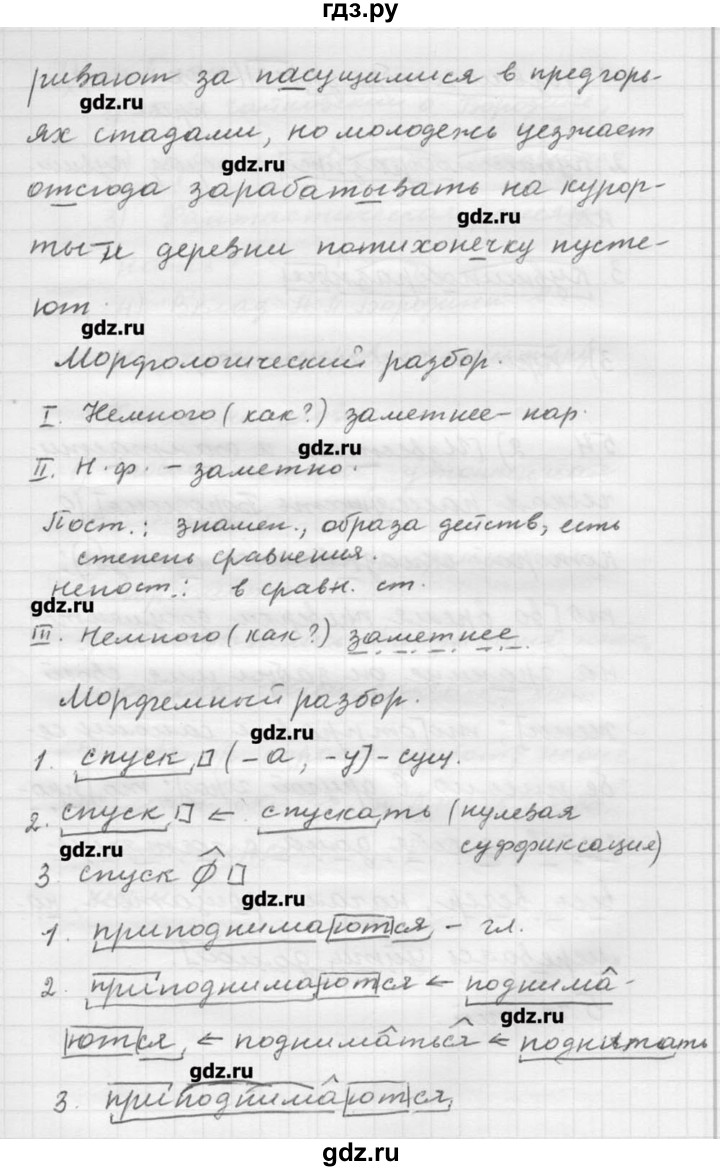 гдз.ру
ривают за пасущимися в предгорь-
gdz.ru
ях стадами, но молодежь уезжает
gdz.ru
отсюда зарабатывать на курор-
gdz.ru
ты – и деревни потихонечку пусте-
ют.
gdz.ru
Морфологический разбор.
I. Немного (как?) заметнее – нар.
gdz.ru
II. Н. ф. – заметно.
Пост.: знамен., образа действ., есть
степень сравнения.
непост.: в сравн. ст.
gdz.ru
III. Немного (как?) заметнее
Морфемный разбор.
gdz.ru
1. спуск (-а, -у) – сущ.
2. спуск ← спускать (нулевая
суффиксация)
gdz.ru
3. спуск ∅
gdz.ru
1. приподнимаются – гл.
2. приподнимаются ← поднима-
gdz.ru
ются ← подниматься ← поднимать
gdz.ru
3. приподнимаются
gdz.ru